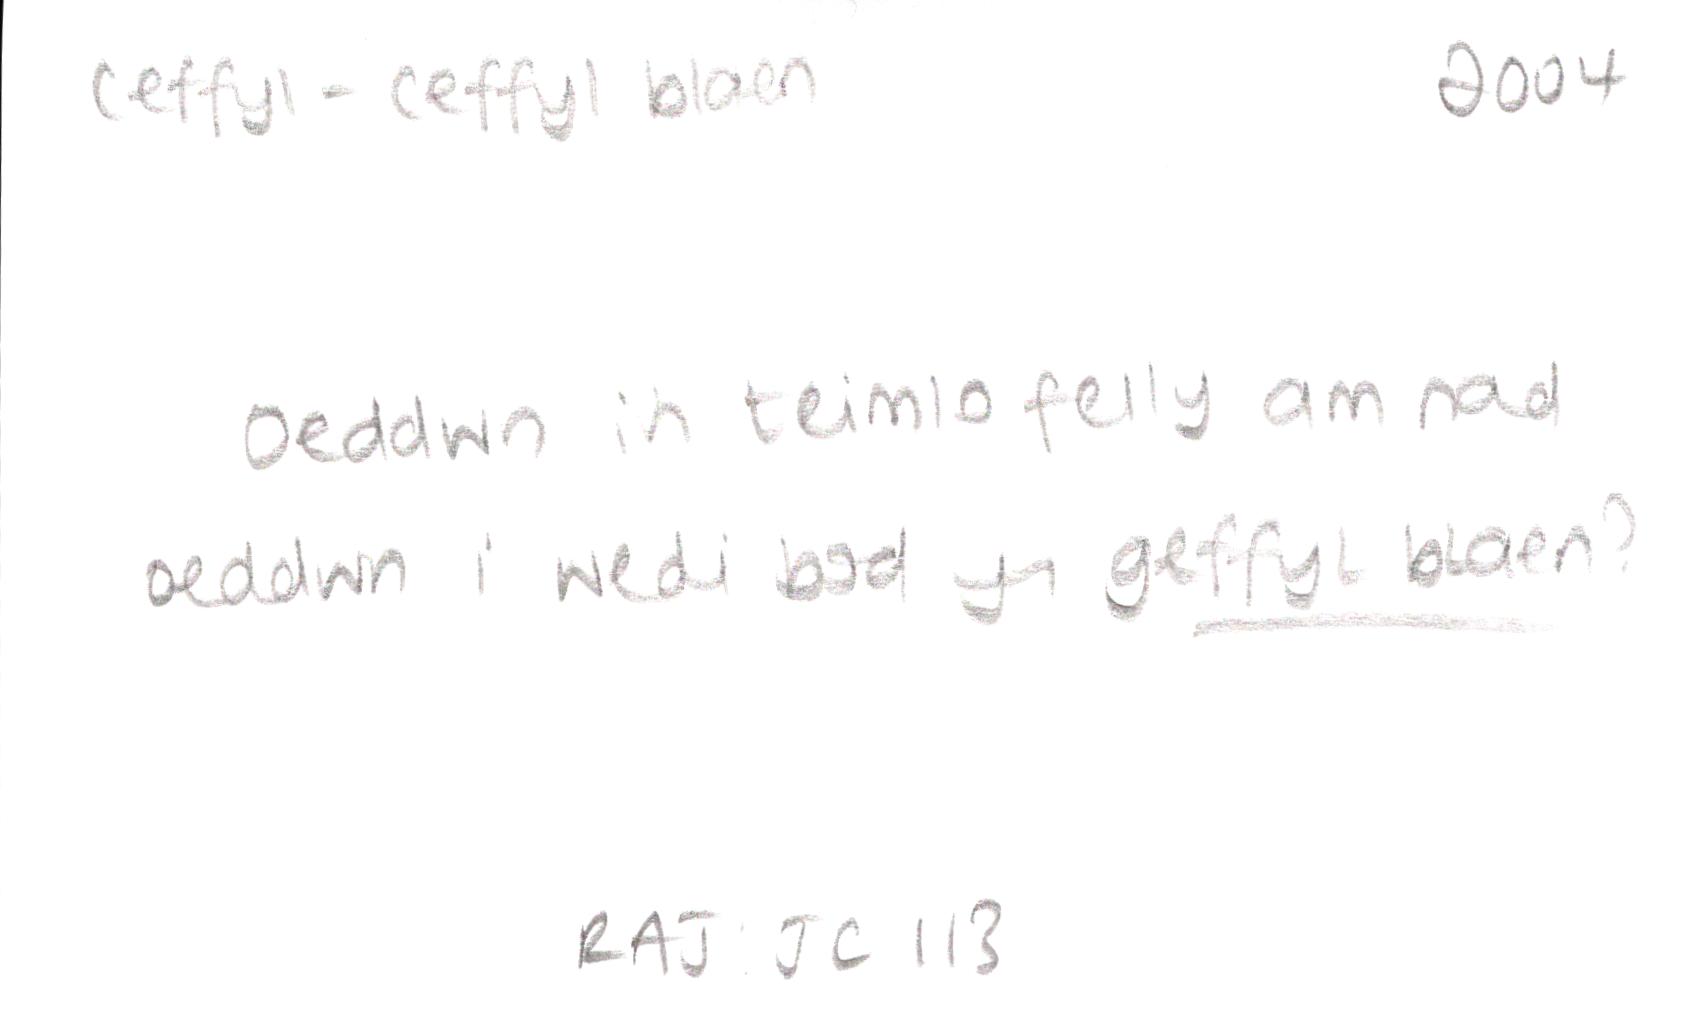 ceffyl - ceffyl blaen 2004
Oeddwn i'n teimlo felly am nad
oeddwn i wedi bod yn geffyl blaen?
RAJ: JC 113